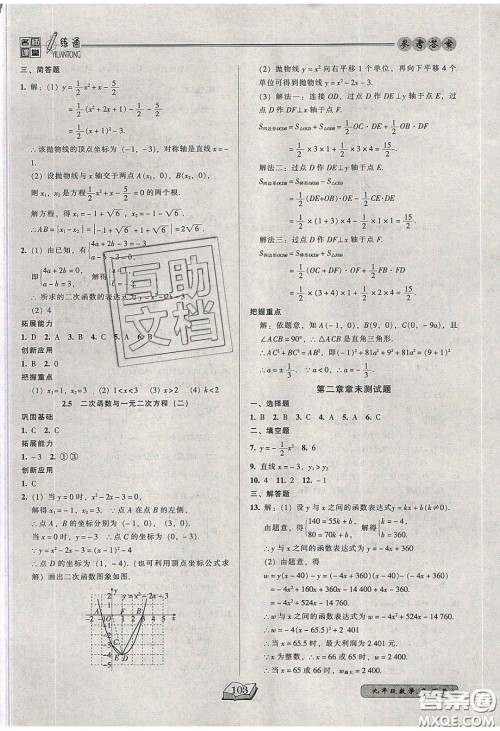 练通
YUANTONG
参考答案
三、简答题
1. 解：(1) y=1/2x²+x-5/2
=1/2(x²+2x)-5/2
=1/2(x+1)²-3.
∴该抛物线的顶点坐标为(-1，-3)，对称轴是直线x=-1.
(2) 设抛物线与x轴交于两点A(x₁，0)，B(x₂，0)，
则x₁，x₂是方程1/2x²+x-5/2=0的根.
解方程，得x₁=-1+√6，x₂=-1-√6，
∴AB=|x₁-x₂|=|-1+√6-(-1-√6)|=2√6
2. (1) 由已知，有
所求的二次函数的表达式为
拓展能力
1. D 2. A 3. B 4. C 5. A
创新应用
1. B 2. C
把握重点
(1) x₁=1，x₂=3 (2) 1<x<3 (3) x>2 (4) k<2
2.5 二次函数与一元二次方程（二）
巩固基础
1. C 2. C
拓展能力
1. -3 2. ①③
创新应用
1. C
2. (1) 当y=0时，x²-2x-3=0，
解得x₁=-1，x₂=3.
∵点A在点B的左侧，
∴点A，B的坐标分别为(-1，0)，(3，0).
当x=0时，y=-3.
∴点C的坐标为(0，-3).
∴点D的坐标为(1，-4).（也可利用顶点坐标公式求
解）画出二次函数图象如图.
y=x²-2x-3
(2) 抛物线y=x²向右平移1个单位，再向下平移4个
单位可得到抛物线y=x²-2x-3.
(3) 解法一：连接OD，过点D作DE⊥y轴于点E，过
点D作DF⊥x轴于点F.
S四边形OCDB=S△OCD+S△ODB=1/2·OC·DE+1/2·OB·DF
=1/2×3×1+1/2×3×4=15/2.
解法二：过点D作DE⊥y轴于点E.
S四边形OCDB=S梯形OEDB-S△CED
=1/2(DE+OB)·OE-1/2CE·DE
=1/2×(1+3)×4-1/2×1×1=15/2.
解法三：过点D作DF⊥x轴于点F.
S四边形OCDB=S梯形OCDF+S△FDB
=1/2×(OC+DF)·OF+1/2·FB·DF
=1/2×(3+4)×1+1/2×2×4=15/2.
把握重点
解：依题意，知A(-1，0)，B(9，0)，C(0，-9a)，且
∠ACB=90°. ∴△ACB是直角三角形.
∴AC²+BC²=AB². 即1+81a²+9²+81a²=10².
∴a=±1/3.
第二章章末测试题
一、选择题
1. B 2. B 3. C 4. C 5. A 6. B
二、填空题
7. y=-1/2x² 8. 6
9. 直线x=-3，y₁>y₂
10. 4 11. 2 12. -1
三、解答题
13. 解：(1) 设y与x之间的函数表达式为y=kx+b(k≠0).
由题意，得{140=55k+b，80=70k+b. 解得{k=-4，b=360.
∴y与x之间的函数表达式为y=-4x+360.
(2) 由题意，得
w=y(x-40)-y=(-4x+360)(x-40)-(-4x+360)
=-4x²+160x+360x-14400+4x-360
=-4x²+524x-14760.
∴w与x之间的函数表达式为w=-4x²+524x-14760.
∴w=-4(x-65.5)²+2401.
∴当x=65.5时，最大利润为2401元.
∵x为整数，∴x=66或65时，w=2400.
∵x为整数，∴w最大=2400.
互助
文档
103
九年级数学
答案圈
MXQE.COM